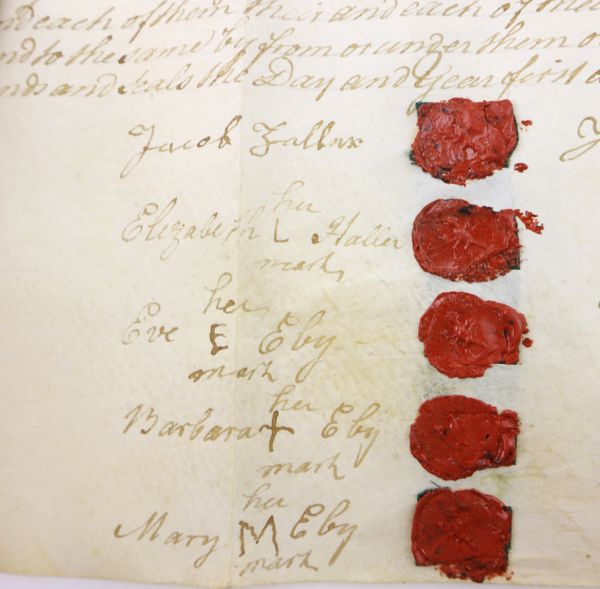 nd each of them their and each of
nd to the same by from or under them o
nds and seals the Day and Year first a
Jacob Haller
her
Elizabeth L Haller
mark
her
Eve E Eby
mark
her
Barbara + Eby
mark
her
Mary M Eby
mark